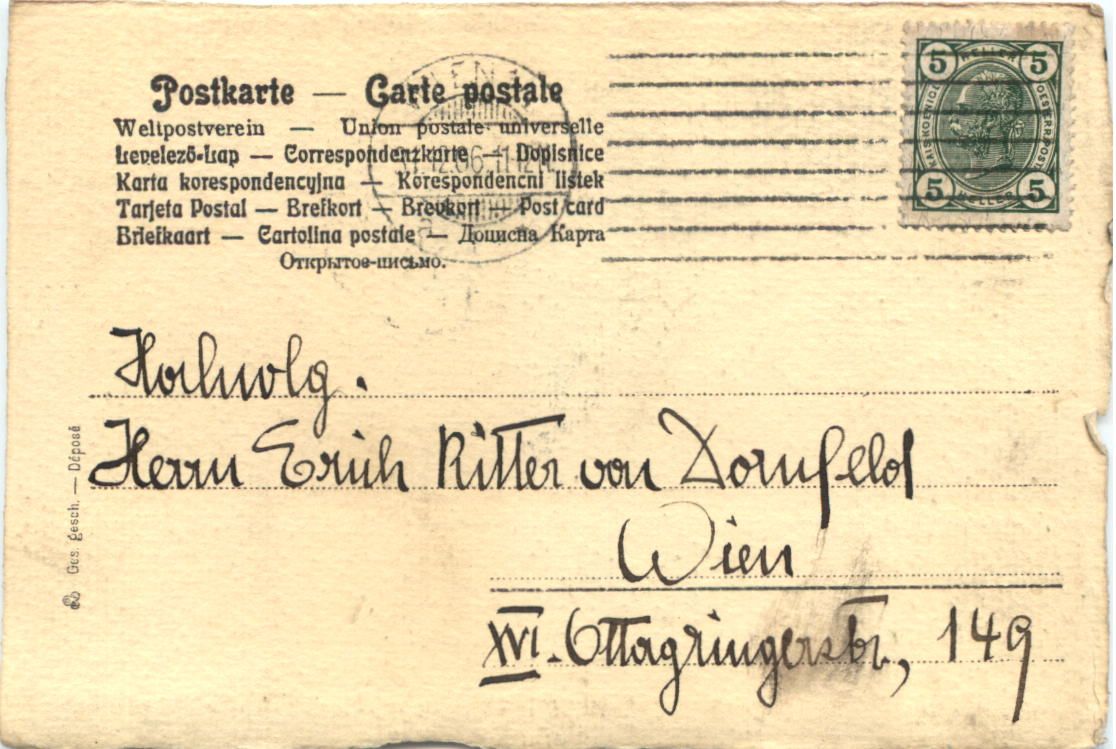 Postkarte — Carte postale
Weltpostverein — Union postale universelle
Levelező-Lap — Correspondenzkarte — Dopisnice
Karta korespondencyjna — Korespondencni listek
Tarjeta Postal — Brefkort — Brevkort — Post card
Briefkaart — Cartolina postale — Дописна Карта
Открытое-письмо.
5 HELLER 5
KAISKOENIGL OESTERRPOST
5 HELLER 5
Hochwolg.
Herrn Erich Ritter von Dornfeld
Wien
XVI. Ottagringerstr, 149
Ges. gesch. — Déposé